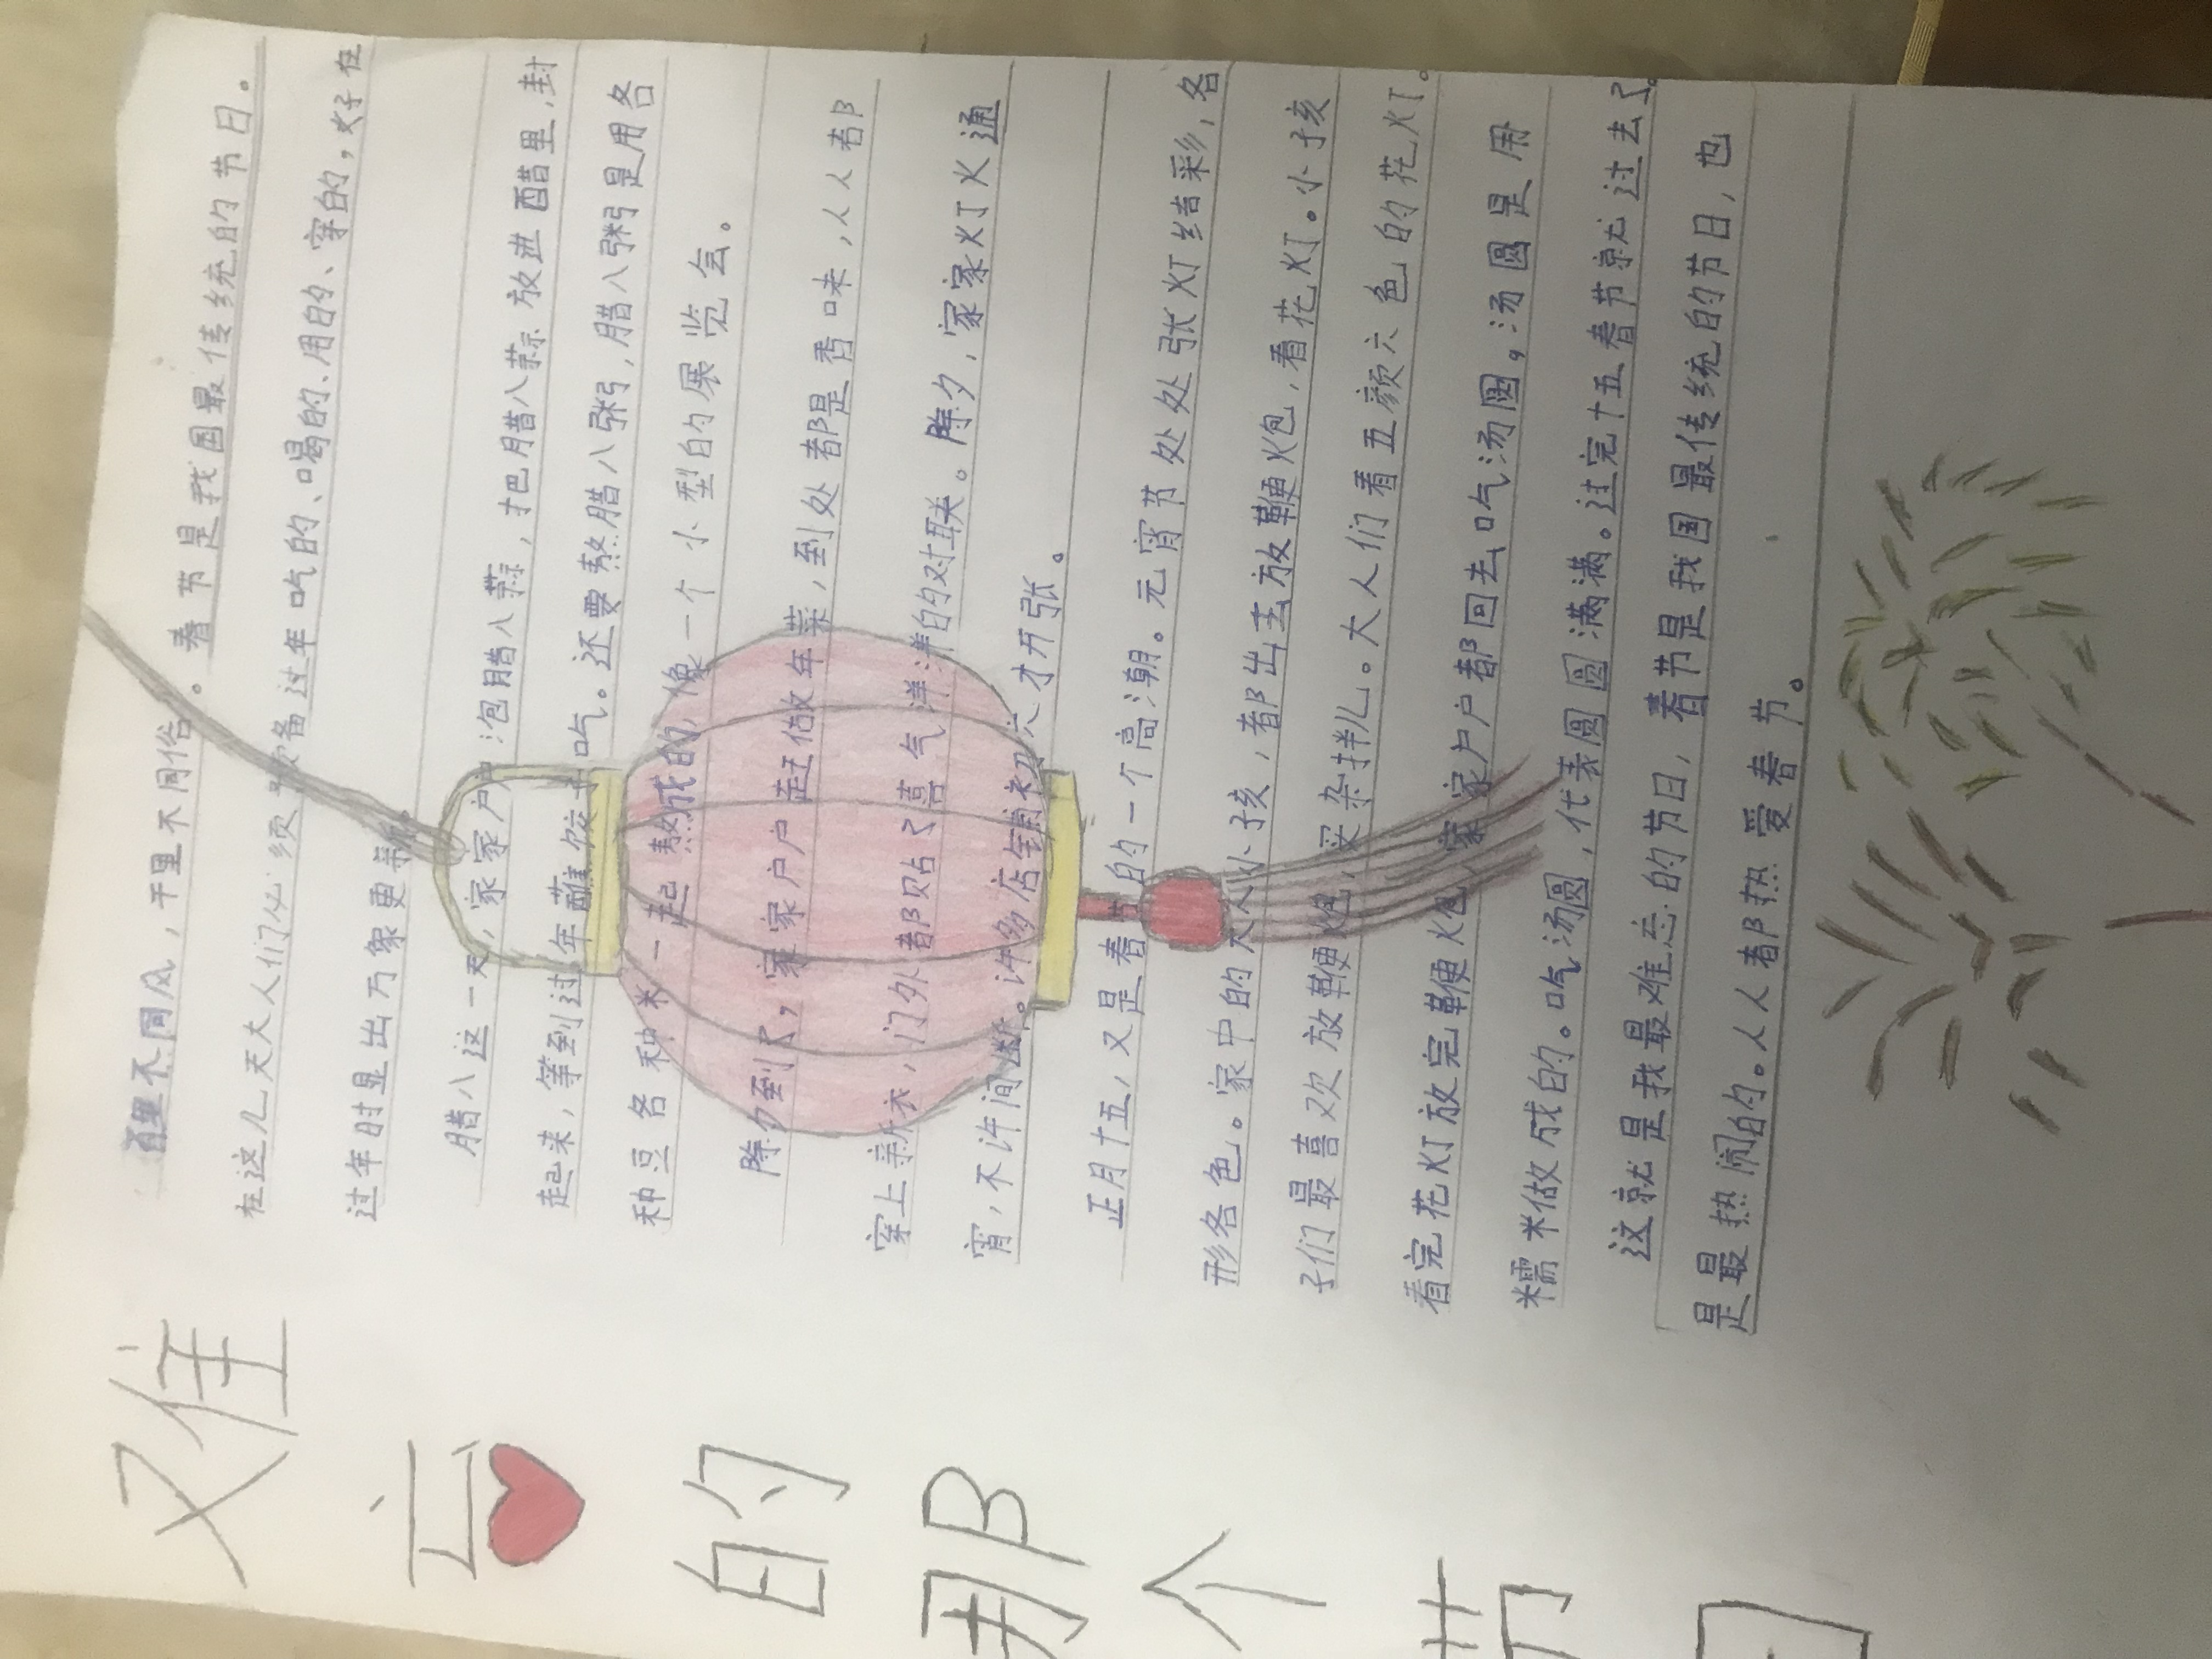 难忘的那个节日
百里不同风，千里不同俗。春节是我国最传统的节日。
在这几天大人们必须预备过年吃的、喝的、用的、穿的，好在
过年时显出万象更新
腊八这一天，家家户户泡腊八蒜，把腊八蒜放进醋里，封
起来，等到过年蘸饺子吃。还要熬腊八粥，腊八粥是用各
种豆各种米一起熬成的，像一个小型的展览会。
除夕到了，家家户户赶做年菜，到处都是香味，人人都
穿上新衣，门外都贴了喜气洋洋的对联。除夕，家家灯火通
宵，不许间断。许多店铺初六才开张。
正月十五，又是春节的一个高潮。元宵节处处张灯结彩，各
形各色。家中的大人小孩，都出去放鞭炮，看花灯。小孩
子们最喜欢放鞭炮，买杂拌儿。大人们看五颜六色的花灯。
看完花灯放完鞭炮，家家户户都回去吃汤圆，汤圆是用
糯米做成的。吃汤圆，代表圆圆满满。过完十五春节就过去了。
这就是我最难忘的节日，春节是我国最传统的节日，也
是最热闹的。人人都热爱春节。